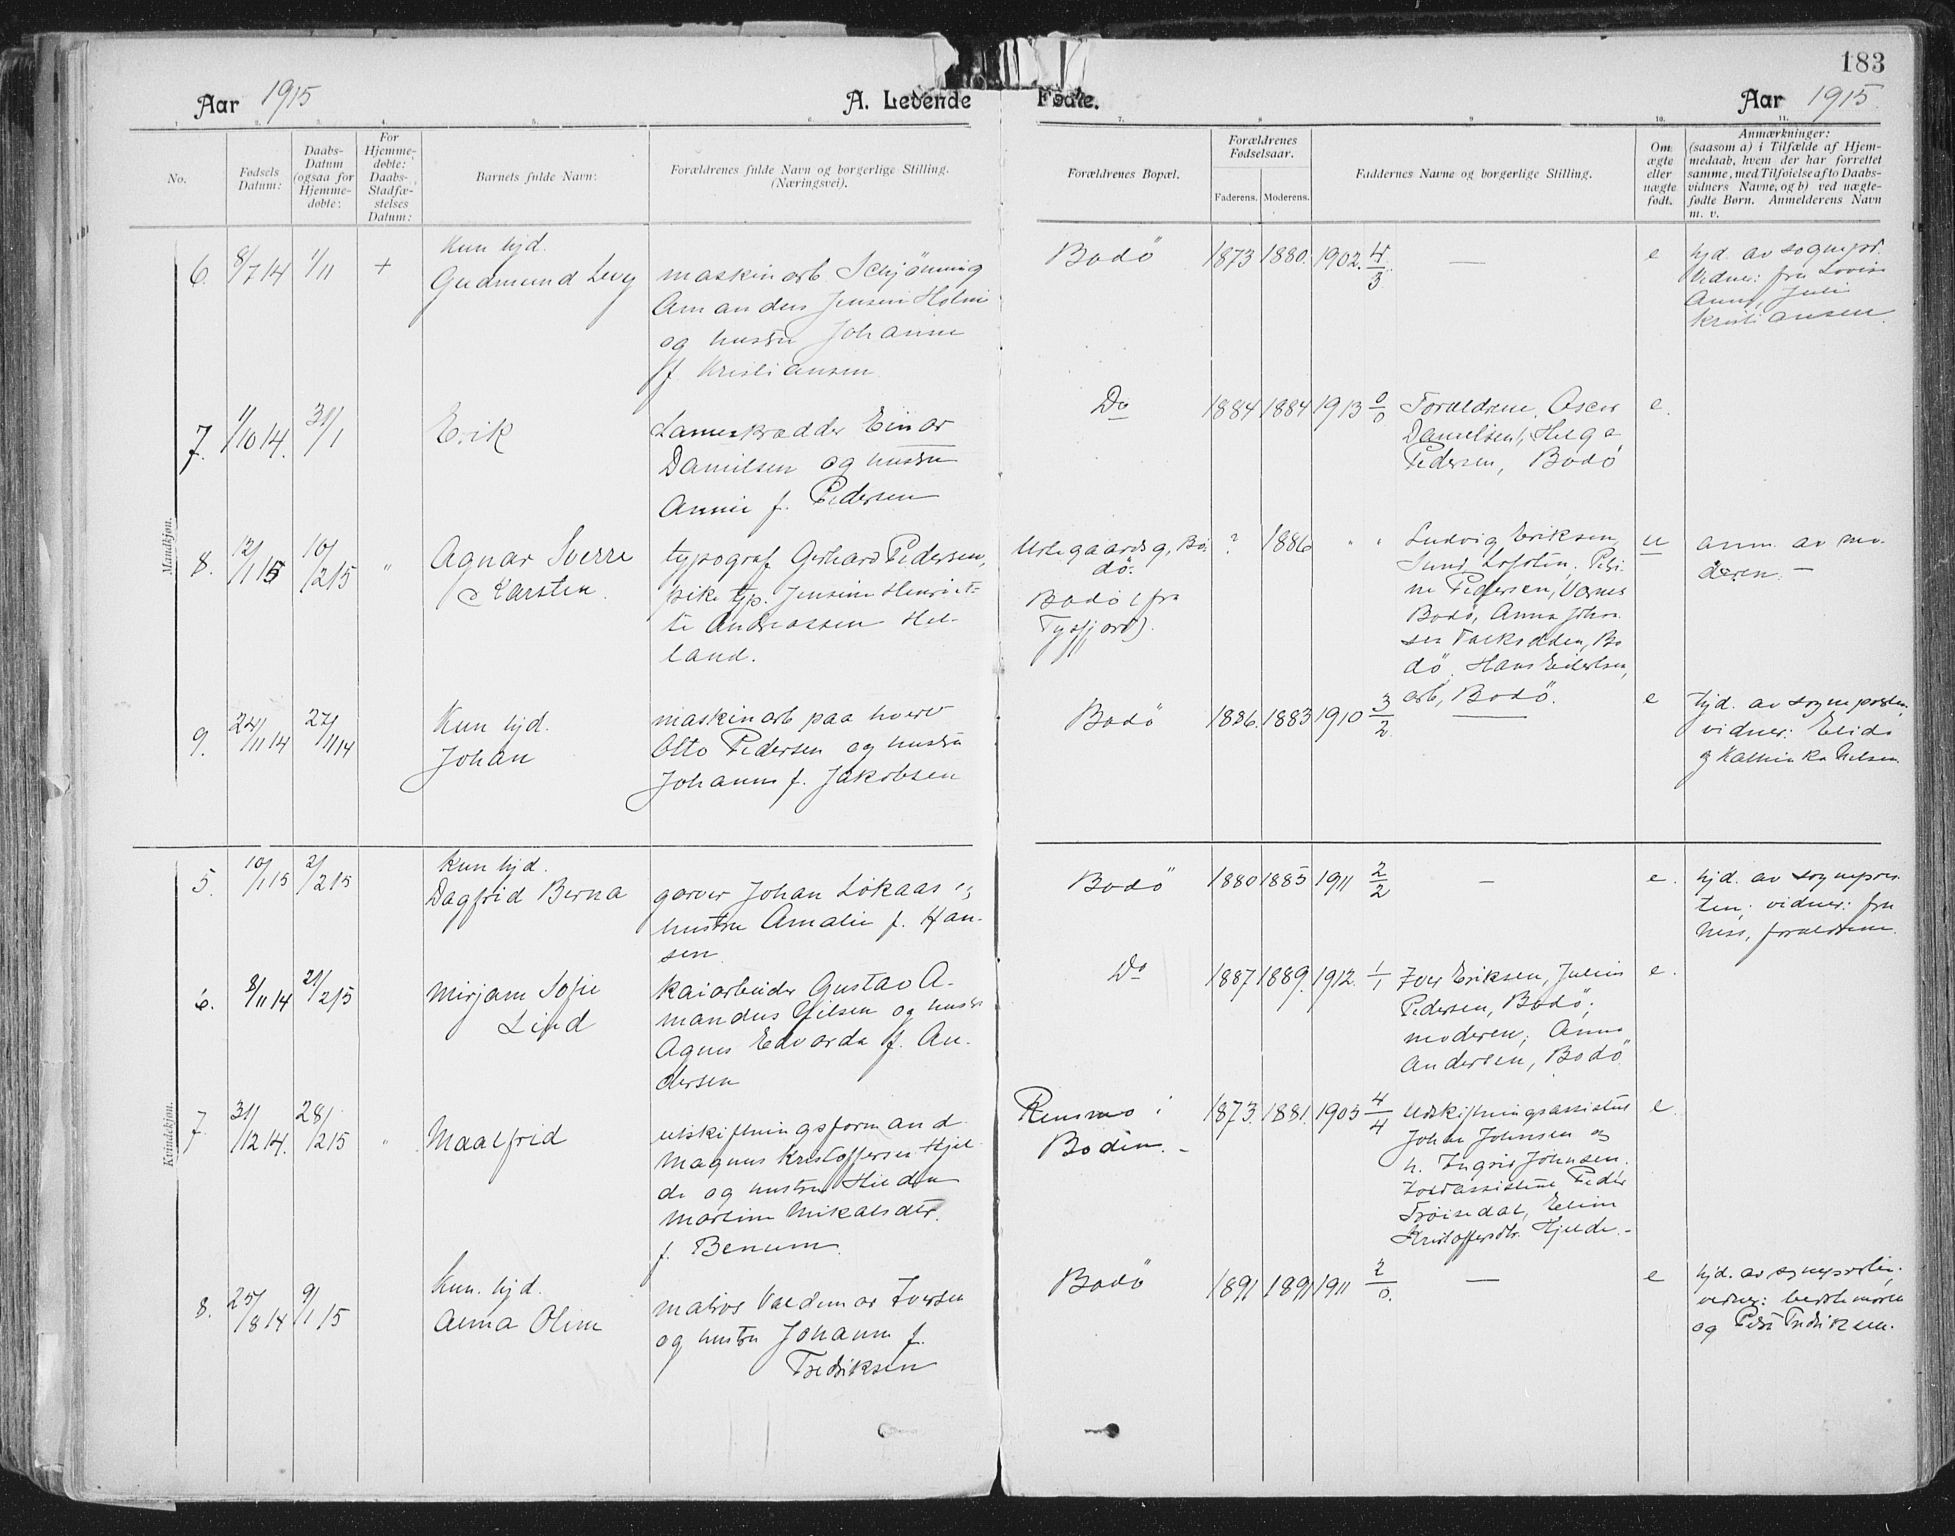 183
Aar 1915
A. Levende Fødte.
Aar 1915.
1. 2. 3. 4. 5. 6. 7. 8 9 10. 11.
No.
Fødsels Datum:
Daabs-Datum (ogsaa for Hjemme-døbte:
For Hjemme-døbte: Daabs-Stadfæ-stelses Datum:
Barnets fulde Navn:
Forældrenes fulde Navn og borgerlige Stilling.
(Næringsvei).
Forældrenes Bopæl.
Forældrenes Fødselsaar.
Faderens. Moderens.
Faddernes Navne og borgerlige Stilling.
Om ægte eller uægte født.
Anmærkninger:
(saasom a) i Tilfælde af Hjem-
medaab, hvem der har forrettet
samme, med Tilføielse af to Daabs-
vidners Navne, og b) ved uægte-
fødte Børn. Anmelderens Navn
m. v.
Mandkjøn.
6. 8/7 14 1/11 +
Kun hjd.
Gudmund Levy
maskinarb. Schjønning
Amandus Jensen Holm
og hustru Johanne
f. Kristiansen
Bodö 1873 1880. 1902. 4/3 — e
hjd. av sognepr.
Vidner: fru Lovise
Anna, Juli
Kristiansen.
7. 1/10 14. 31/1
Erik
Dameskrædder Einar
Danielsen og hustru
Annie f. Pedersen
Do 1884 1884 1913 0/0
Foraldrene, Oscar
Danielsen, Helga
Pedersen, Bodö
e.
8. 12/1 15 10/2 15 "
Agnar Sverre
Karsten.
typograf Gerhard Pedersen,
pike typ. Jensine Henriet-
te Andreassen Hel-
land.
Bo-
dö.
Bodö (fra
Tysfjord).
? 1886 " "
Ludvig Eriksen,
Sund, Lofoten, Petri-
ne Pedersen,
Bodö, Anna Johan-
sen Bo-
dö, Hans Eilertsen,
arb, Bodö.
u
anm. av mo-
deren. —
9. 24/11 14 27/11 14
Kun hjd.
Johan
maskinarb paa hverv
Otto Pedersen og hustru
Johanne f. Jakobsen
Bodö 1886. 1883 1910 3/2 — e
hjd. av sogneprsten,
vidner: Elida
og Kathinka Nilsen
Kvindekjøn.
5. 10/1 15 2/2 15
Kun hjd.
Dagfrid Berna
garver Johan Løkaas og
hustru Amalie f. Han-
sen
Bodö 1880 1885 1911 2/2 — e.
hjd. av sognepres-
ten; vidner: fru
Ness, foraldrene
6. 8/11 14 21/2 15
Mirjam Sofie
Lind
kaiarbeider Gustav A-
mandus Nilsen og hustru
Agnes Edvarda f. An-
dersen
Do 1887 1889. 1912. 1/1
Iver Eriksen, Julius
Pedersen, Bodö;
moderen; Anna
Andersen, Bodö
e.
7. 31/12 14. 28/2 15 "
Maalfrid
utskiftningsformand
Magnus Kristoffersen Hjel-
de og hustru Hilda
Martine Mikalsdtr.
f. Benum
Rensmo i
Bodin. -
1873. 1881. 1905 4/4
Utskiftningsassistent
Johan Johnsen og
h. Ingrid Johnsen.
Toldassistent Peder
Trøisedal, Elin
Kristoffersdtr. Hjelde. -
e.
8. 25/8 14 9/1 15
Kun. hjd.
Anna Oline
matros Valdemar Iversen
og hustru Johanne f.
Fredriksen
Bodö 1891 1891 1911 2/0. — e
hjd. av sognepresten.
vidner: bedstemoren
og Petra Fredriksen.